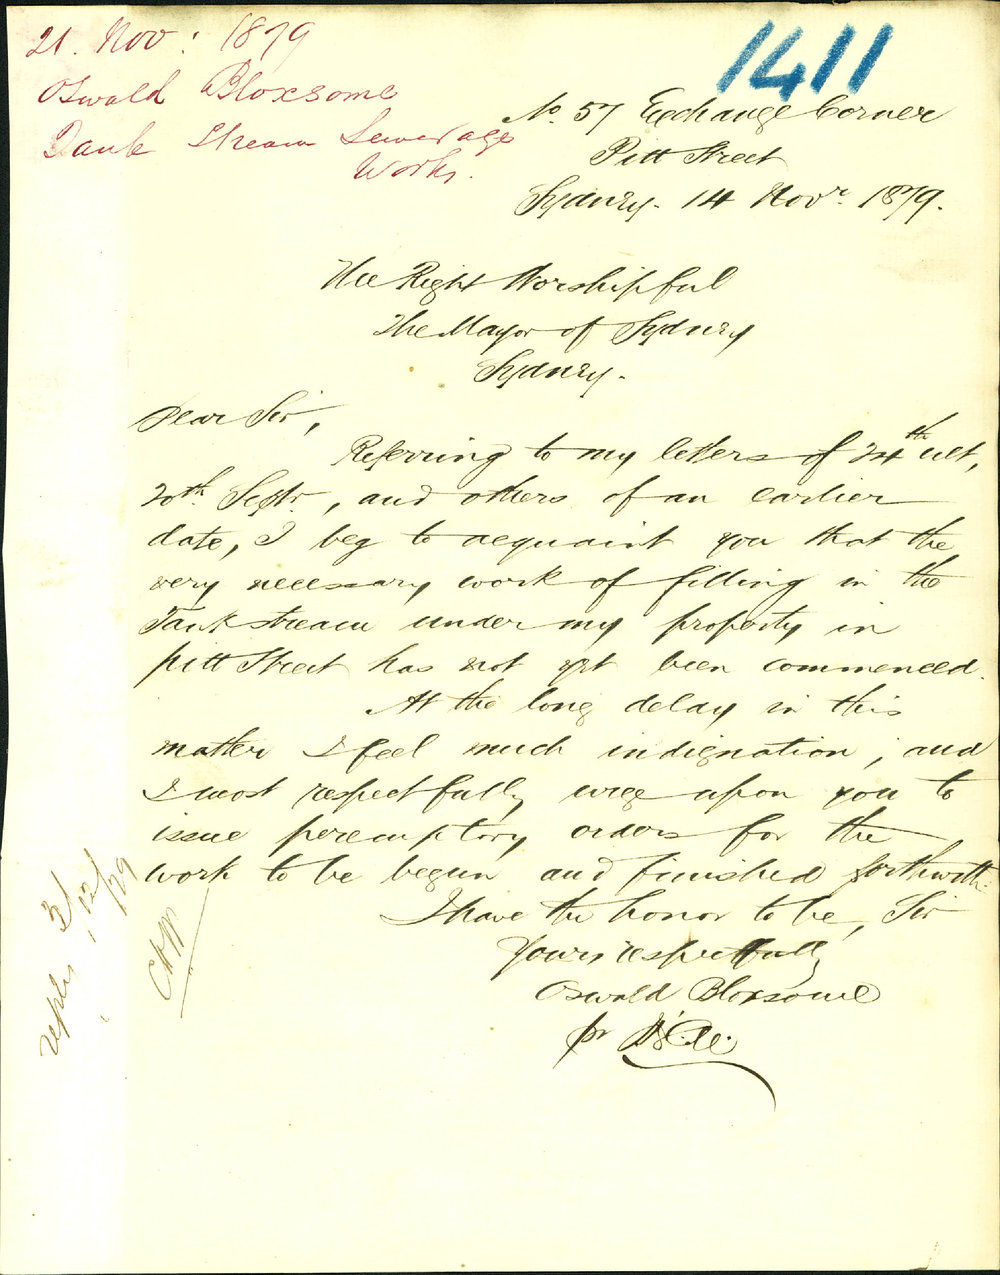 21. Nov: 1879
Oswald Bloxsome
Tank Stream Sewerage
Works.
1411
No. 57 Exchange Corner
Pitt Street
Sydney. 14 Novr. 1879.
The Right Worshipful
The Mayor of Sydney
Sydney.
Dear Sir,
Referring to my letters of 24th ult,
20th Septr., and others of an earlier
date, I beg to acquaint you that the
very necessary work of filling in the
Tank stream under my property in
Pitt Street has not yet been commenced.
At the long delay in this
matter I feel much indignation, and
I most respectfully urge upon you to
issue peremptory orders for the
work to be begun and finished forthwith.
I have the honor to be, Sir
Yours respectfully
Oswald Bloxsome
pr
reply 3/12/79